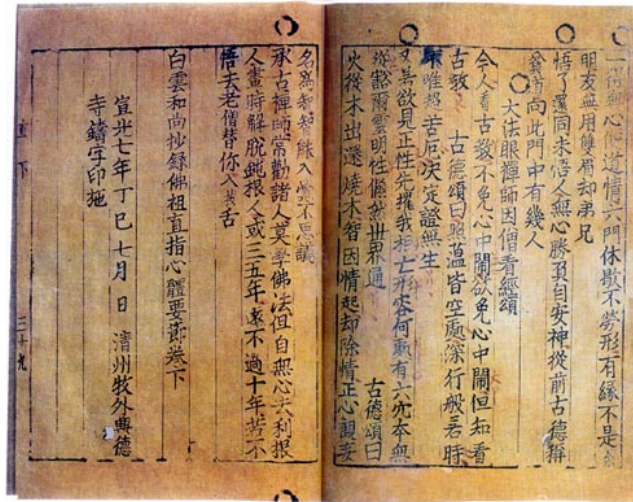 一得無心便道情六門休歇不勞形有緣不是余
朋友無用雙眉却弟兄
悟了還同未悟人無心勝負自安神從前古德稱
貧道向此門中有幾人
大法眼禪師因僧看經頌
今人看古教不免心中鬧欲免心中鬧但知看
古教 古德頌曰照蘊皆空處深行般若時
唯超苦厄決定證無生
又兼欲見正性先摧我相亡形容何處有六宂本無
從豁爾靈明性儼然世界通 古德頌曰
火從木出還燒木智因情起却除情正心觀妄
名爲智智能入 不思議
承古禪師常勸諸人莫學佛法但自無心去利根
人畫時解脫鈍根人或三五年遠不過十年若不
悟去老僧替你入 舌
白雲和尚抄錄佛祖直指心體要節卷下
宣光七年丁巳七月 日 清州牧外興德
寺鑄字印施
直下
三十九